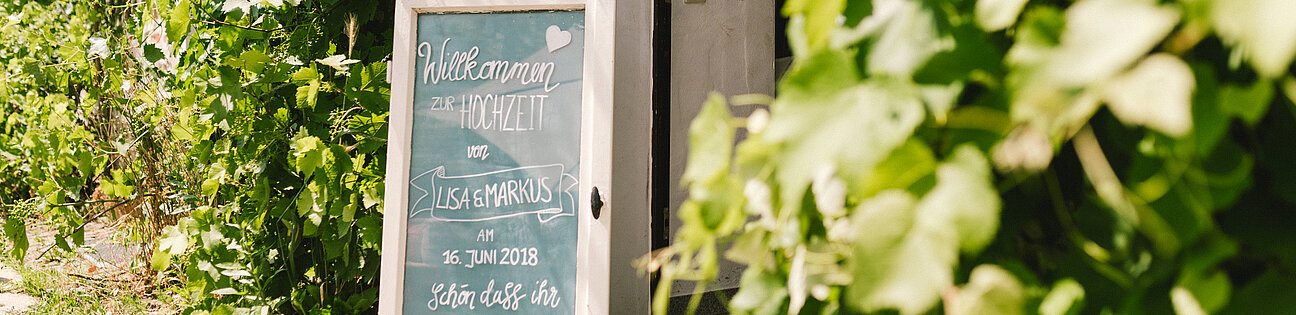 Willkommen
ZUR HOCHZEIT
von
LISA & MARKUS
AM
16. JUNI 2018
Schön dass ihr